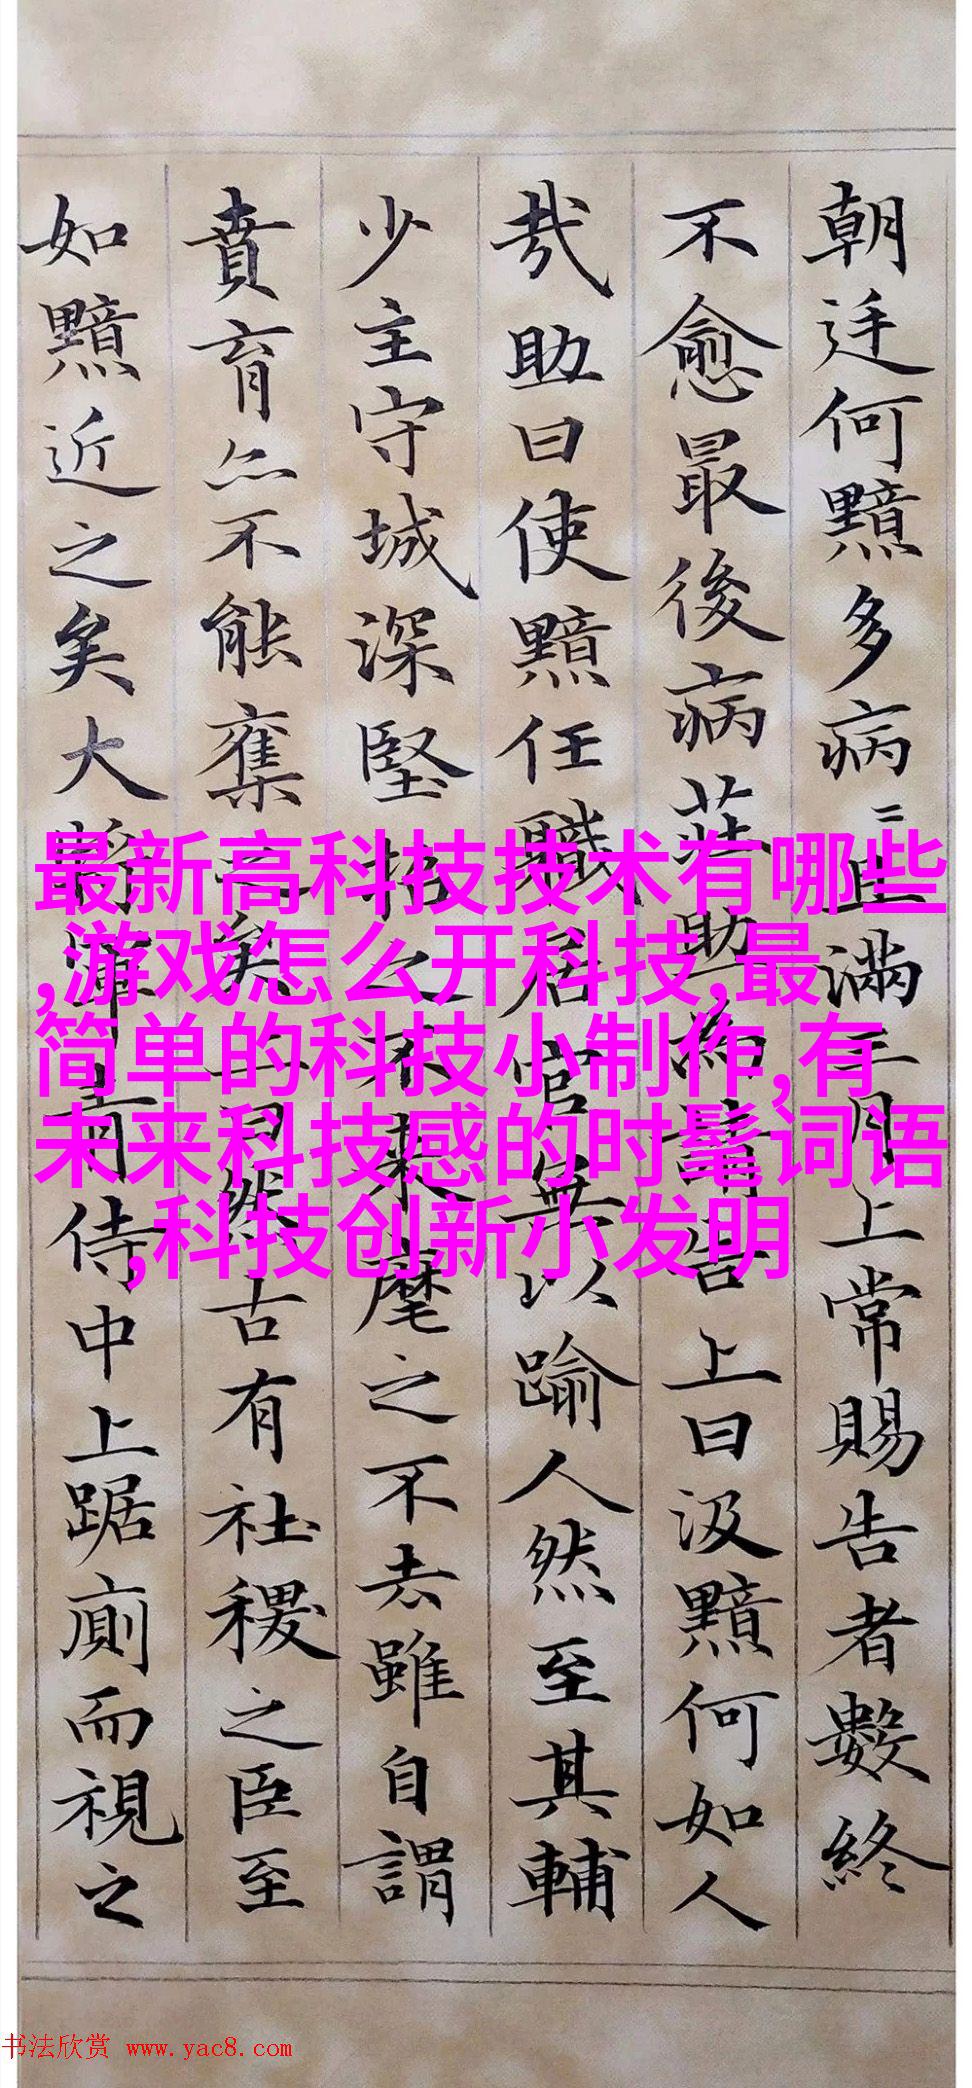 朝廷何黯多病〻且滿三月上常賜告者數終
不愈最後病莊助為請告上曰汲黯何如人
哉助曰使黯任職居官無以踰人然至其輔
少主守城深堅招之不來麾之不去雖自謂
賁育亦不能奪之矣上曰然古有社稷之臣至
如黯近之矣大將軍青侍中上踞廁而視之
最新高科技技术有哪些
,游戏怎么开科技,最
简单的科技小制作,有
未来科技感的时髦词语
,科技创新小发明
书法欣赏 www.yac8.com